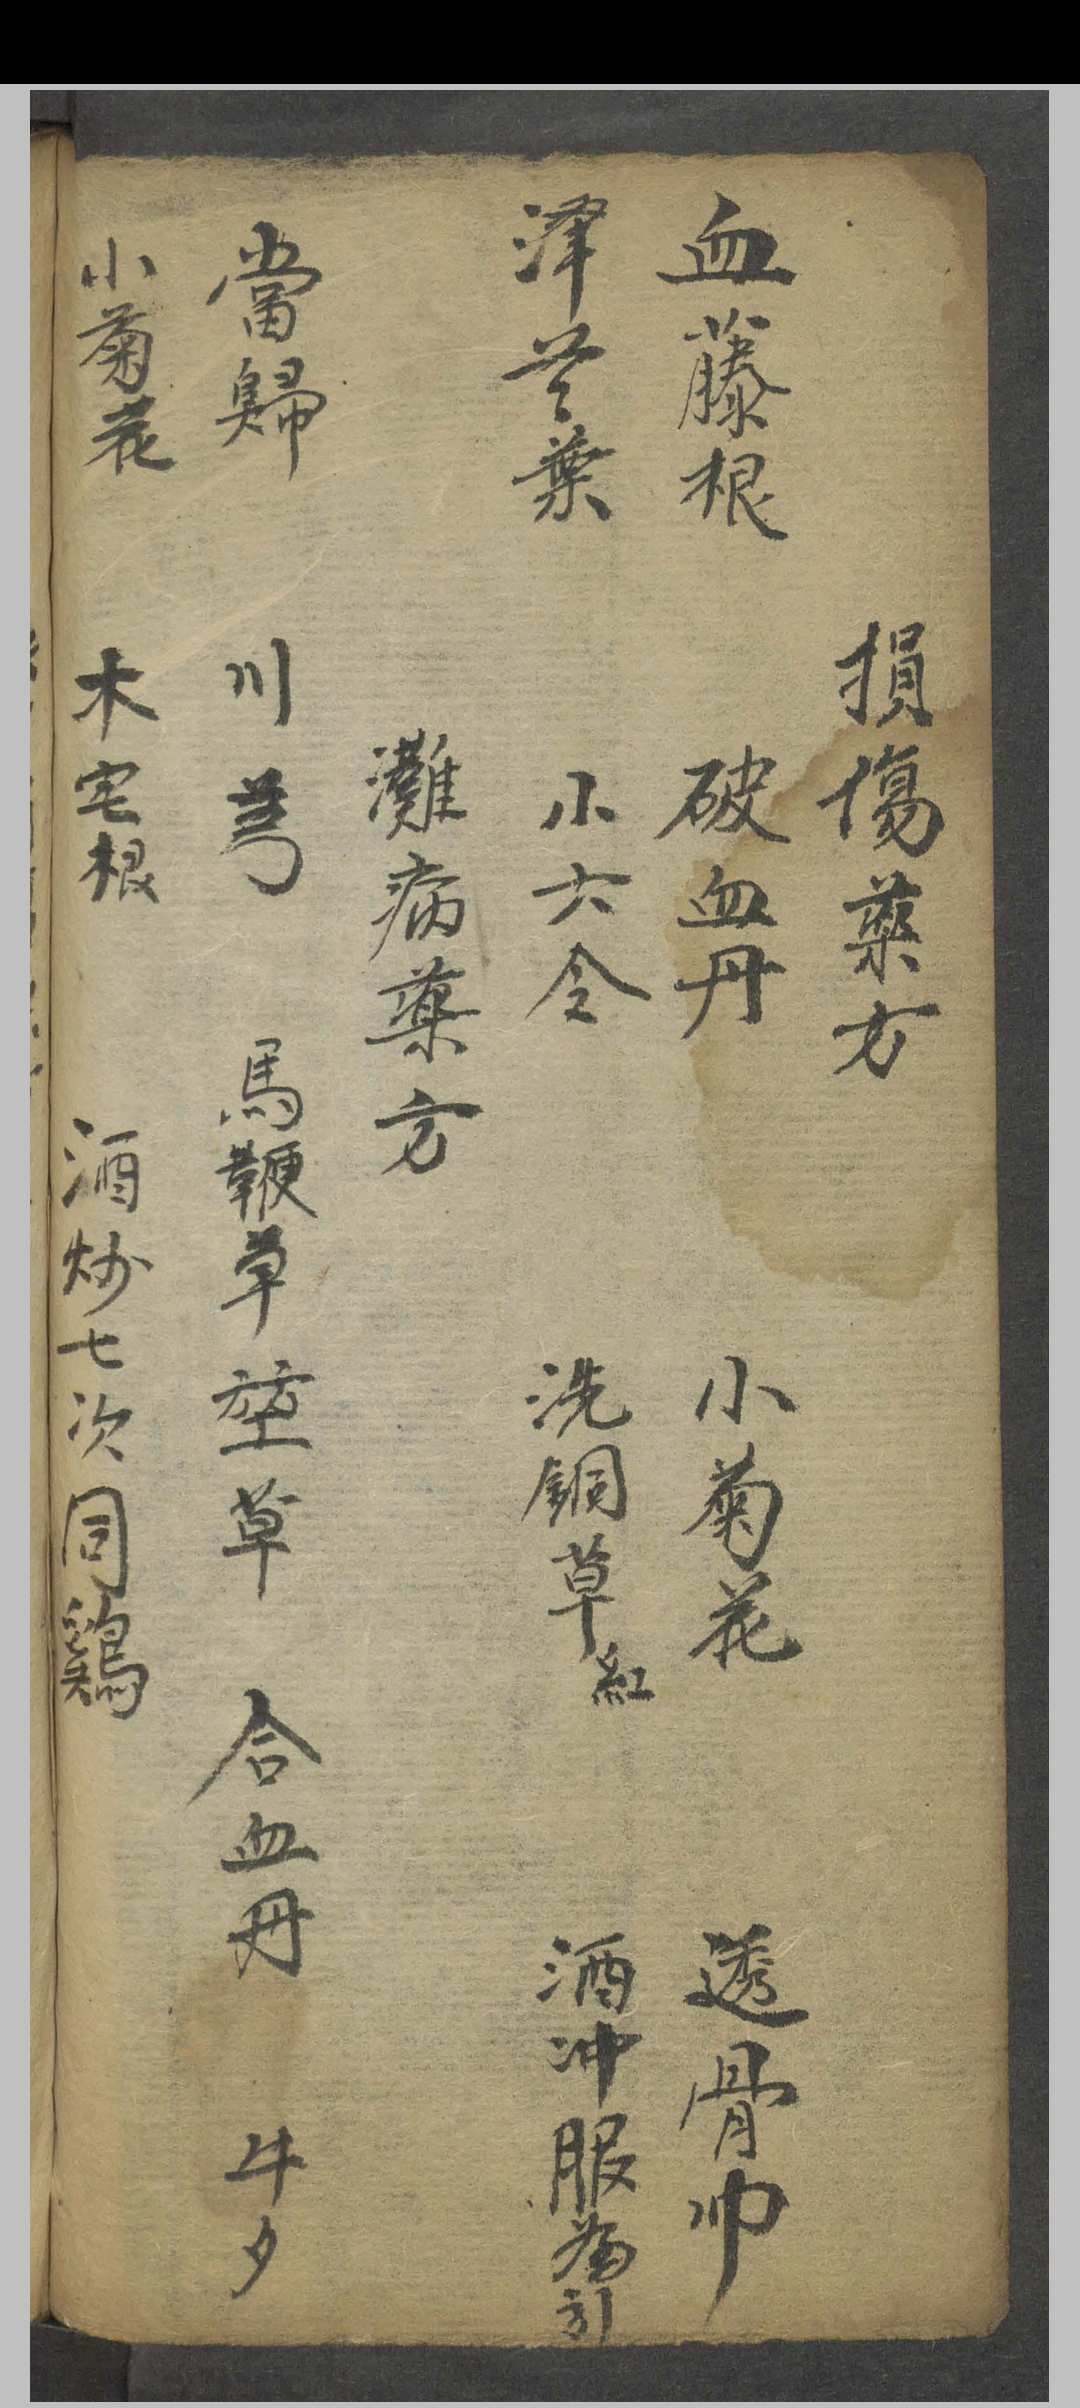 損傷藥方
血藤根 破血丹 小菊花 透骨
澤葉 小六令 洗銅草紅 酒冲服為引
灘病藥方
當歸 川芎 馬鞭草 草 合血丹 牛夕
小菊花 木宅根 酒炒七次同鷄